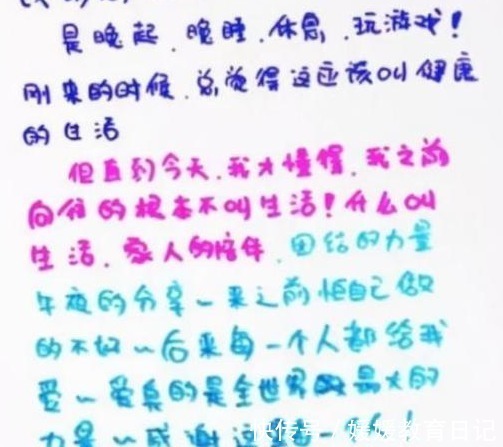 是晚起、晚睡、休息、玩游戏！
刚来的时候、总觉得这应该叫健康
的生活
但直到今天、我才懂得、我之前
向往的根本不叫生活！什么叫
生活、家人的陪伴、团结的力量
午夜的分享~来之前怕自己做
的不好~后来每一个人都给我
爱~爱真的是全世界最大的
力量~感谢
快传号/媛媛教育日记